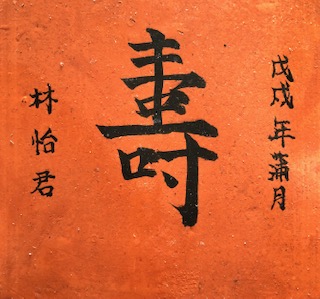 戊戌年蒲月
壽
林怡君